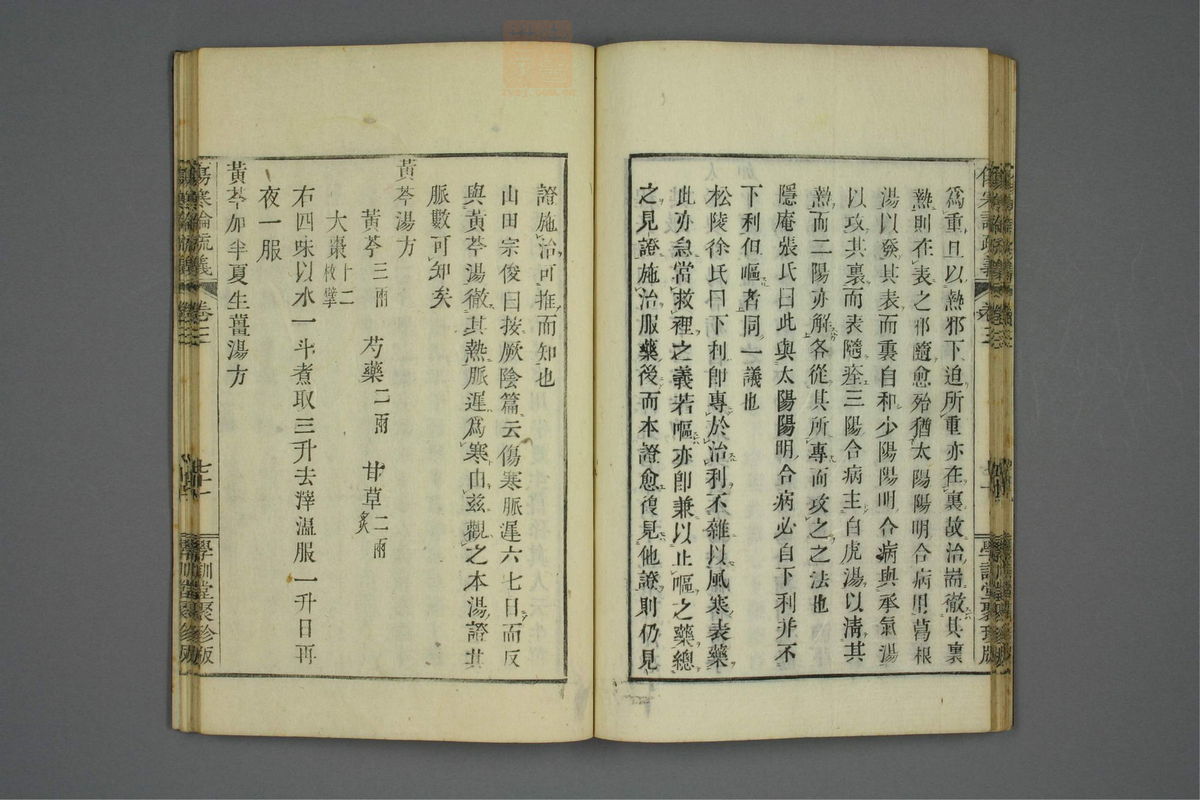 爲重且以熱邪下迫所重亦在裏故治耑徹其裏
熱則在表之邪隨愈殆猶太陽陽明合病用葛根
湯以發其表而裏自和少陽陽明合病與承氣湯
以攻其裏而表隨痊三陽合病主白虎湯以清其
熱而二陽亦解各從其所專而攻之之法也
隱庵張氏曰此與太陽陽明合病必自下利并不
下利但嘔者同一議也
松陵徐氏曰下利卽專於治利不雜以風寒表藥
此亦急當救裡之義若嘔亦卽兼以止嘔之藥總
之見證施治服藥後而本證愈復見他證則仍見
傷寒論疏義
卷三
學訓堂聚珍版
證施治可推而知也
山田宗俊曰按厥陰篇云傷寒脈遲六七日而反
與黃芩湯徹其熱脈遲爲寒由茲觀之本湯證其
脈數可知矣
黃芩湯方
黃芩三兩 芍藥二兩 甘草二兩炙
大棗十二枚擘
右四味以水一斗煮取三升去滓溫服一升日再
夜一服
黃芩加半夏生薑湯方
傷寒論疏義
卷三
七十一
學訓堂聚珍版